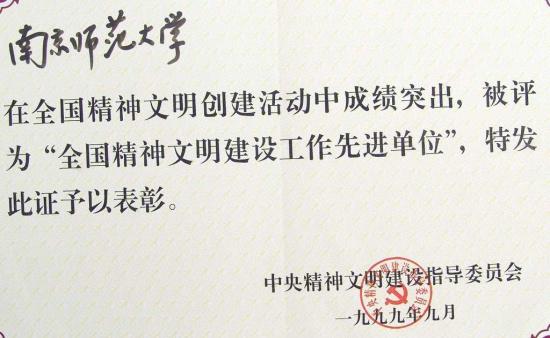 南京师范大学
在全国精神文明创建活动中成绩突出，被评
为“全国精神文明建设工作先进单位”，特发
此证予以表彰。
中央精神文明建设指导委员会
一九九九年九月